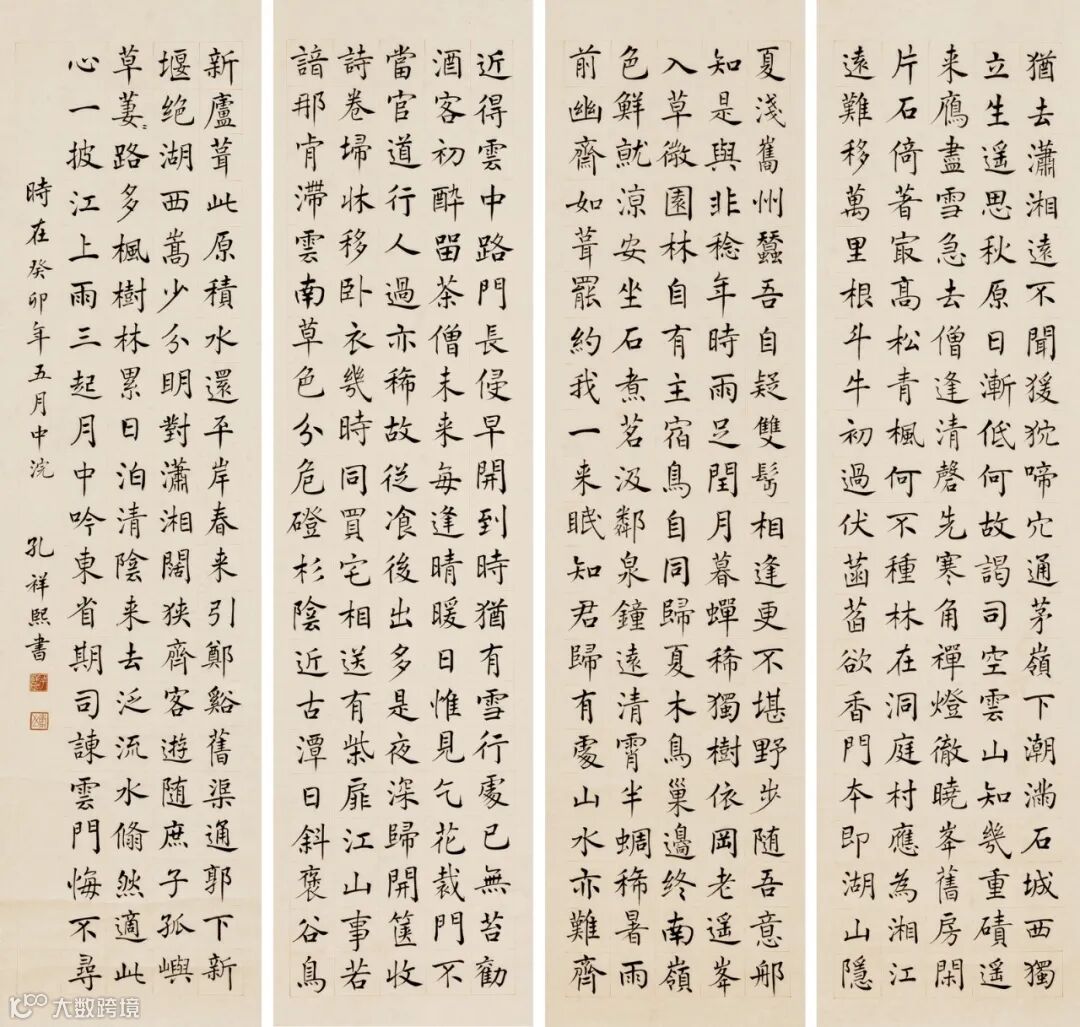 猶去瀟湘遠不聞猨狖啼穴通茅嶺下潮滿石城西獨
立生遥思秋原日漸低何故謁司空雲山知幾重磧遥
来鴈盡雪急去僧逢清磬先寒角禪燈徹曉峯舊房閑
片石倚著冣高松青楓何不種林在洞庭村應為湘江
遠難移萬里根斗牛初過伏菡萏欲香門夲即湖山隱
夏淺舊州蠶吾自疑雙髩相逢更不堪野步随吾意那
知是與非稔年時雨足閏月暮蟬稀獨樹依岡老遥峯
入草微園林自有主宿鳥自同歸夏木鳥巢邊終南嶺
色鮮就涼安坐石煮茗汲鄰泉鐘遠清霄半蜩稀暑雨
前幽齋如葺罷約我一来眠知君歸有處山水亦難齊
近得雲中路門長侵早開到時猶有雪行處已無苔勸
酒客初醉留茶僧未来每逢晴暖日惟見乞花栽門不
當官道行人過亦稀故從飡後出多是夜深歸開篋收
詩卷埽牀移卧衣幾時同買宅相送有柴扉江山事若
諳那肯滞雲南草色分危磴杉陰近古潭日斜褒谷鳥
新廬葺此原積水還平岸春来引鄭谿舊渠通郭下新
堰絶湖西嵩少分明對瀟湘闊狹齊客遊随庶子孤嶼
草萋〻路多楓樹林累日泊清陰来去泛流水翛然適此
心一披江上雨三起月中吟東省期司諫雲門悔不尋
時在癸卯年五月中浣 孔祥熙書
大数跨境